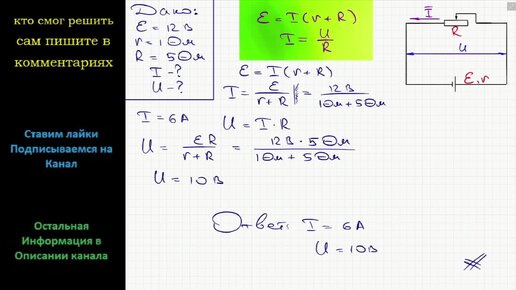 кто смог решить
сам пишите в
комментариях
Ставим лайки
Подписываемся на
Канал
Остальная
Информация в
Описании канала
Дано:
ε = 12 В
r = 1 Ом
R = 5 Ом
I - ?
U - ?
ε = I (r + R)
I = U / R
ε = I (r + R)
I = ε / (r + R) = 12 В / (1 Ом + 5 Ом)
I = 6 А
U = I · R
U = ε R / (r + R) = 12 В · 5 Ом / (1 Ом + 5 Ом)
U = 10 В
Ответ: I = 6 А
U = 10 В
I
R
U
ε, r